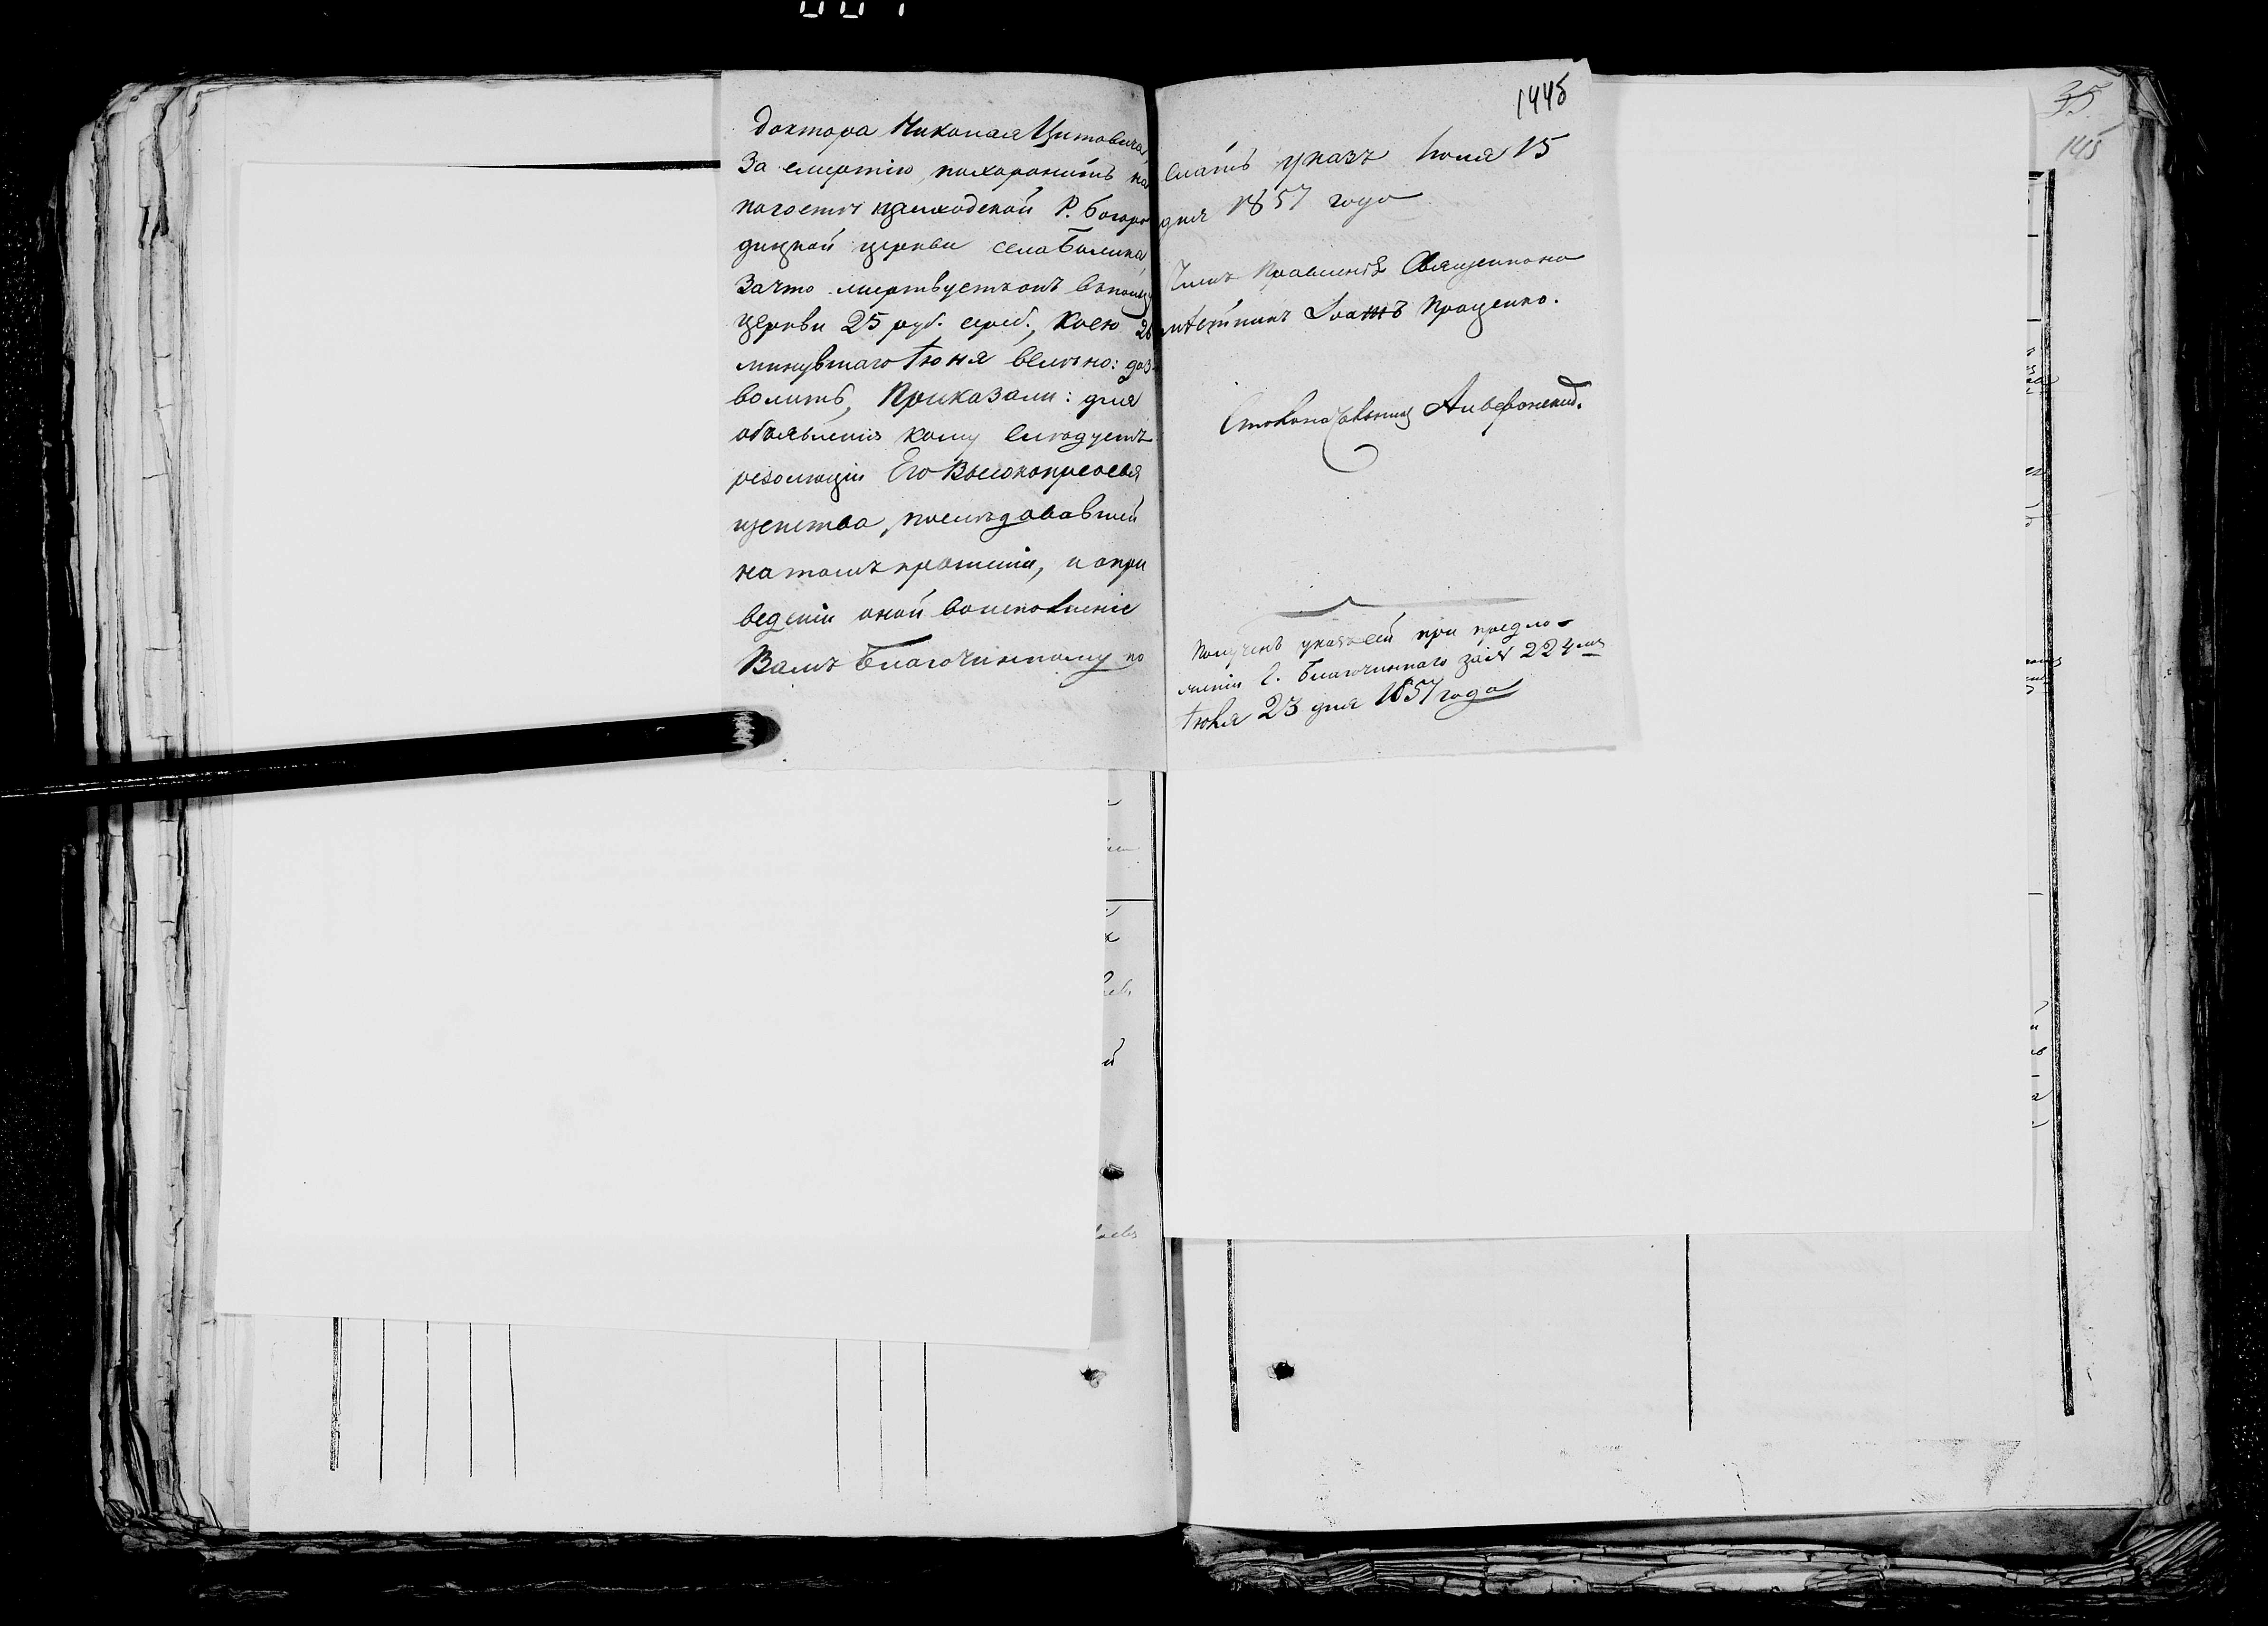 доктора Николая Цитовича,
за смертію, похоронить на
погостѣ приходской Р. Богоро
дицкой церкви села
за что жертвуетъ онъ въ пользу
церкви 25 руб. сереб., коею 26
минувшаго Іюня велѣно: доз-
волить, Приказали: для
объявленія кому слѣдуетъ
резолюціи Его Высокопреосвя
щенства, послѣдовавшей
на томъ прошеніи, и о при
веденіи оной во исполненіе
Вамъ Благочинному по
1445
слать указъ Іюля 15
дня 1857 года
Членъ Правленія Священноно
Іоаннъ Проценко.
Столоначальникъ
Полученъ указъ сей при предло-
женіи О. Благочиннаго за № 224мъ
Іюля 23 дня 1857 года
35.
145